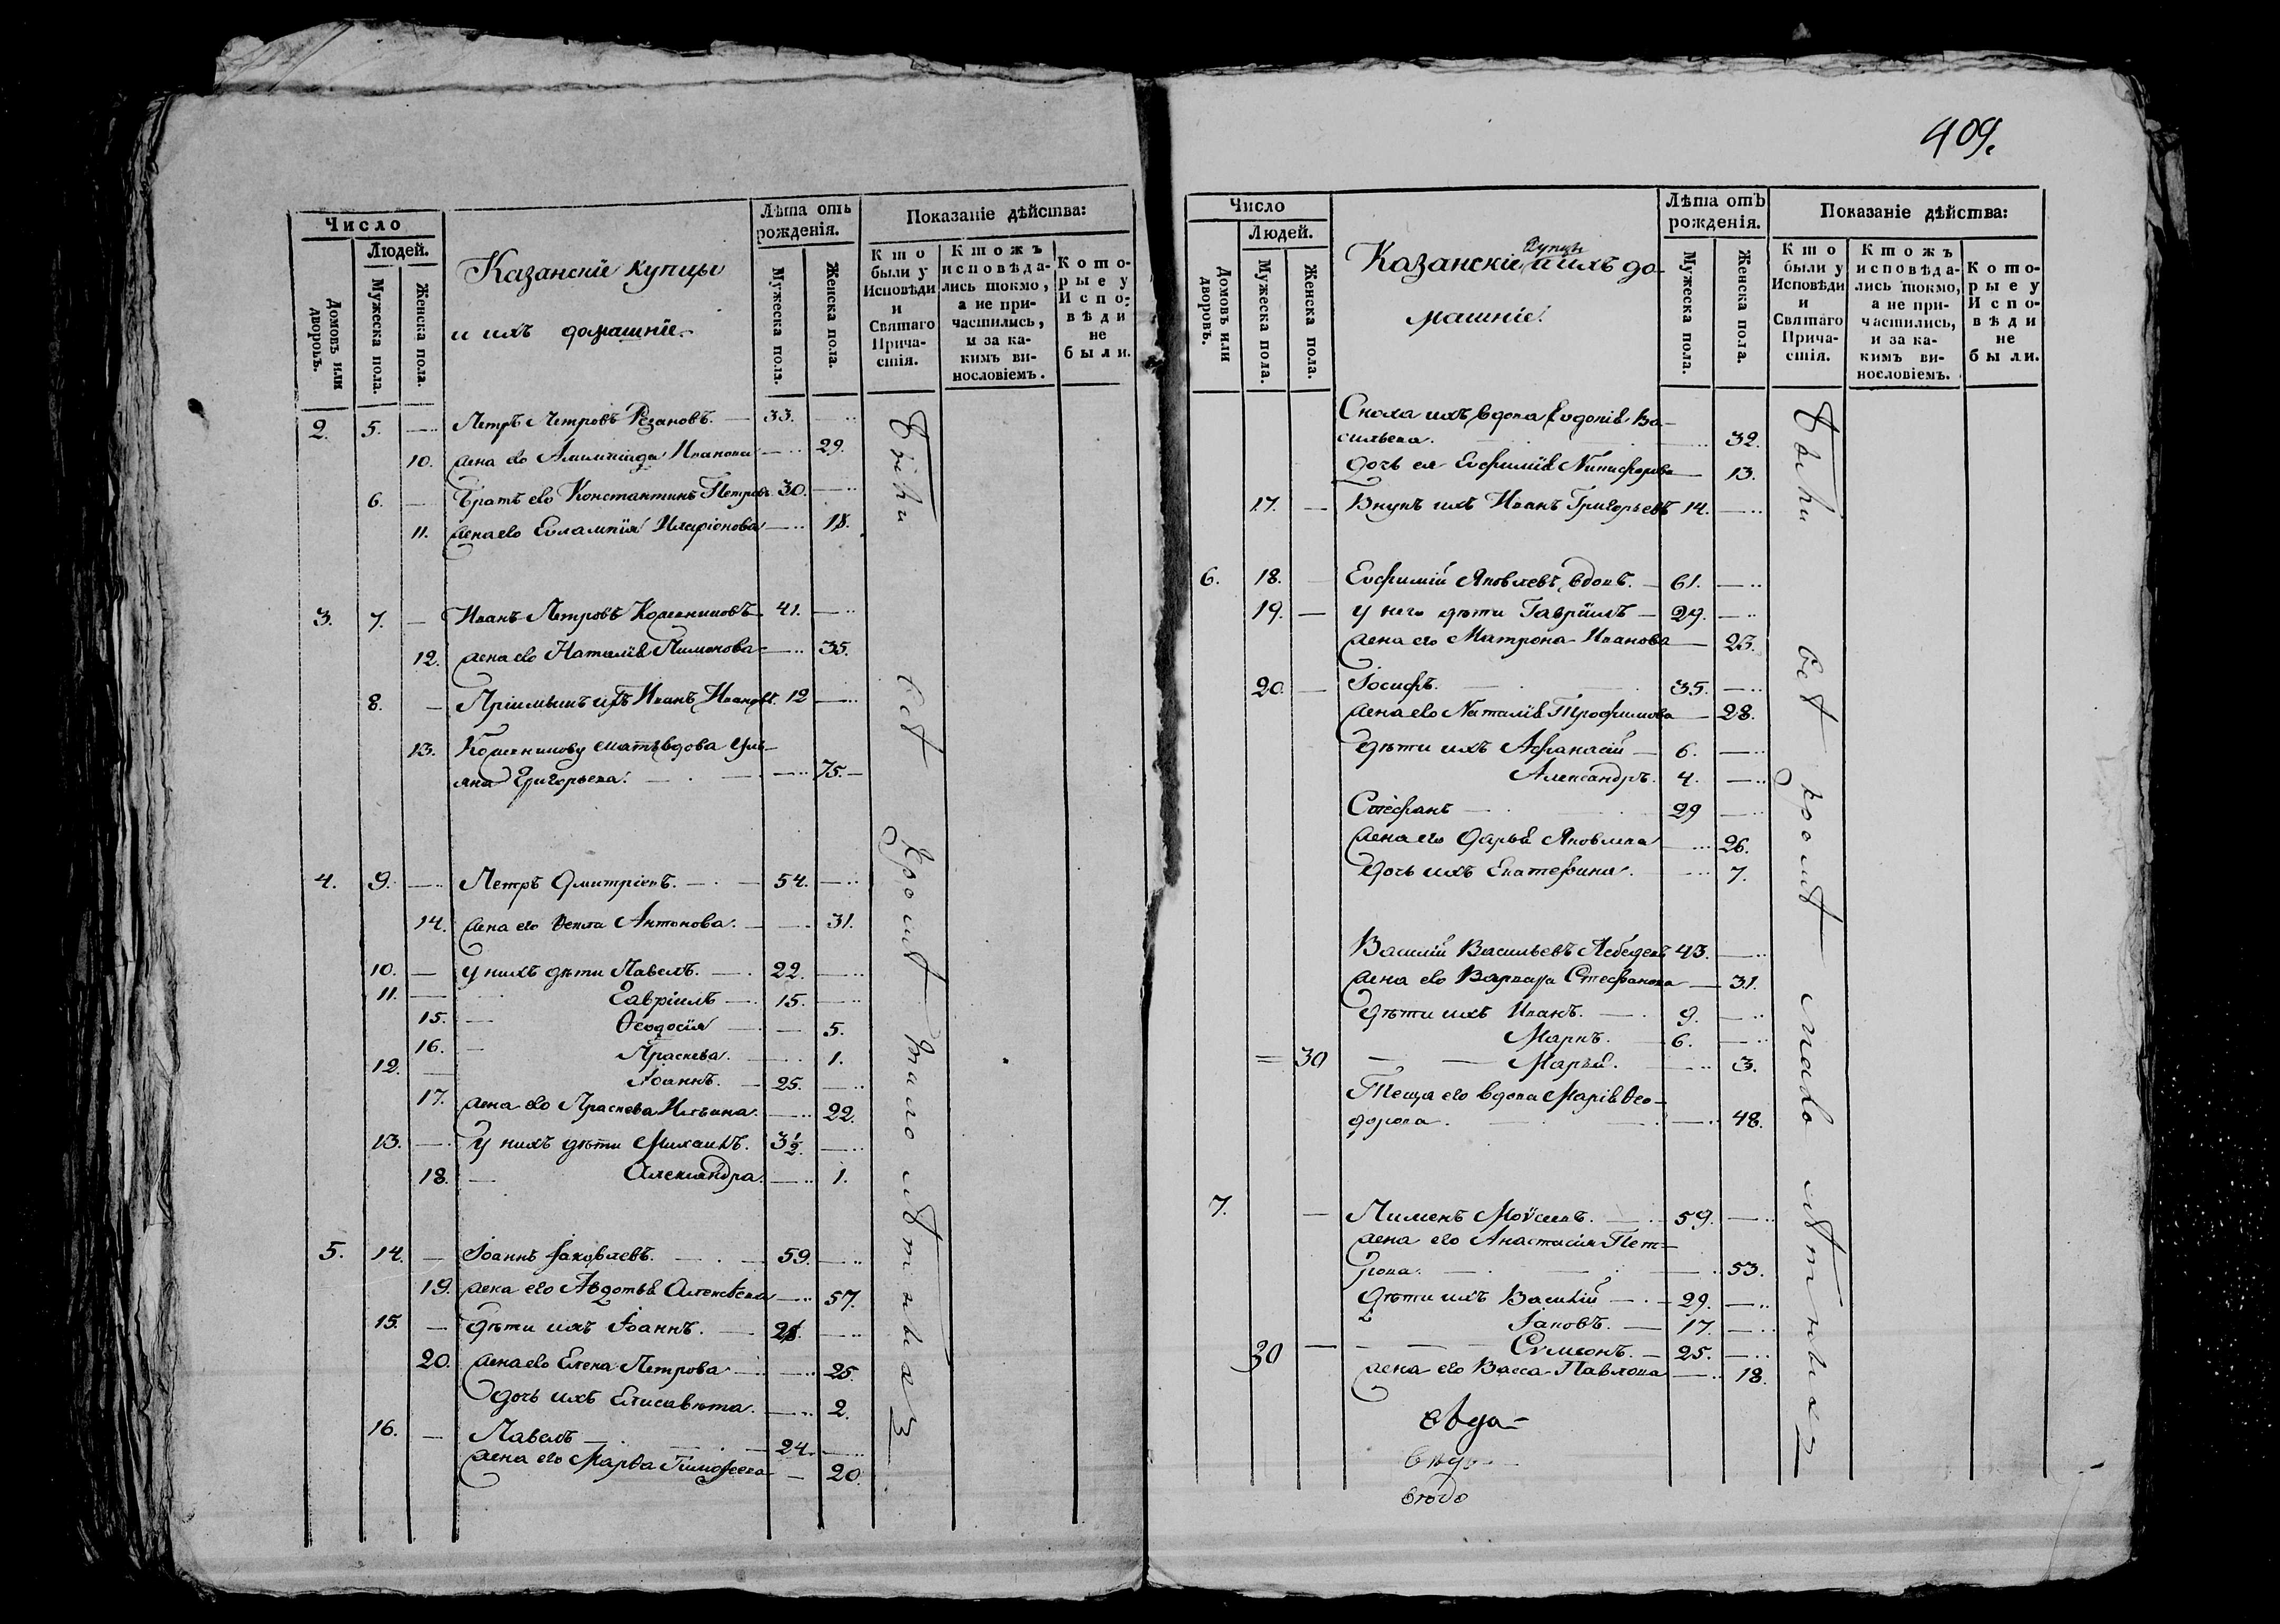 Число
Людей.
Домовъ или дворовъ.
Мужеска пола.
Женска пола.
Казанскіе купцы
и ихъ домашніе.
Лѣта отъ рожденія.
Мужеска пола.
Женска пола.
Показаніе дѣйства:
Кто были у Исповѣди и Святаго Причастія.
Ктожъ исповѣдались токмо, а не причастились, и за какимъ винословіемъ.
Которые у Исповѣди не были.
2. 5. — Петръ Петровъ Резановъ. — 33. —
10. жена его Алимпіада Иванова — 29.
6. — Братъ его Константинъ Петровъ 30. —
11. жена его Евлампія Иларіонова — 18.
3. 7. — Иванъ Петровъ Кожевниковъ 41. —
12. жена его Наталія Пимонова — 35.
8. — Пріимышъ ихъ Иванъ Ивановъ. 12 —
13. Кожевникову мать вдова Уль-
яна Григорьева. — 75. —
4. 9. — Петръ Дмитріевъ. — 54. —
14. жена его Ѳекла Антонова. — 31.
10. — у нихъ дѣти Павелъ. — 22. —
11. — Гавріилъ — 15. —
15. — Ѳеодосія — 5.
16. — Праскева. — 1.
12. — Іоаннъ. — 25. —
17. жена его Праскева Ильина. — 22.
13. — у нихъ дѣти Михаилъ. 3½. —
18. — Александра. — 1.
5. 14. — Іоаннъ Іаковлевъ. — 59. —
19. жена его Авдотья Алексѣева — 57.
15. — дѣти ихъ Іоаннъ. —
20. жена его Елена Петрова — 25.
дочь ихъ Елисавета. — 2.
16. — Павелъ — 24. —
жена его Марѳа Тимофеева — 20.
были всѣ кромѣ малолѣтныхъ
409.
Число
Людей.
Домовъ или дворовъ.
Мужеска пола.
Женска пола.
Казанскіе купцы и ихъ до-
машніе.
Лѣта отъ рожденія.
Мужеска пола.
Женска пола.
Показаніе дѣйства:
Кто были у Исповѣди и Святаго Причастія.
Ктожъ исповѣдались токмо, а не причастились, и за какимъ винословіемъ.
Которые у Исповѣди не были.
Сноха ихъ вдова Евдокія Ва-
сильева. — 32.
дочь ея Евфимія Никифорова — 13.
17. — Внукъ ихъ Иванъ Григорьевъ 14. —
6. 18. — Евфимій Яковлевъ, вдовъ. — 61. —
19. — у него дѣти Гавріилъ — 29. —
жена его Матрона Иванова — 23.
20. — Іосифъ. 35. —
жена его Наталія Трофимова — 28.
дѣти ихъ Афанасій — 6. —
Александръ. 4. —
Стефанъ — 29 —
жена его Дарья Яковлева — 26.
дочь ихъ Екатерина. — 7.
Василій Васильевъ Лебедевъ 43. —
жена его Варвара Стефанова — 31.
дѣти ихъ Иванъ. — 9. —
Маркъ. — 6. —
= 30 — Марья. — 3.
Теща его вдова Марія Ѳео-
дорова. — 48.
7. — Пименъ Моѵсеевъ. — 59. —
жена его Анастасія Пет-
рова. — 53.
дѣти ихъ Василій — 29. —
Іаковъ. — 17. —
30 — Сѵмеонъ. — 25. —
жена его Васса Павлова — 18.
были всѣ кромѣ малолѣтныхъ